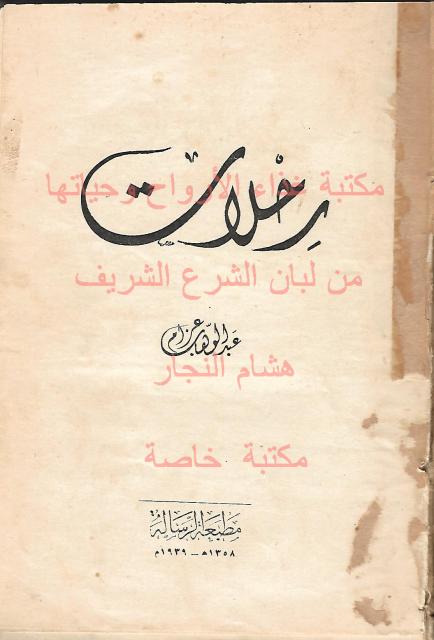 رحلات
مكتبة غذاء الأرواح وحياتها
من لبان الشرع الشريف
عبد الوهاب عزام
هشام النجار
مكتبة خاصة
مطبعة الرسالة
١٣٥٨هـ - ١٩٣٩م